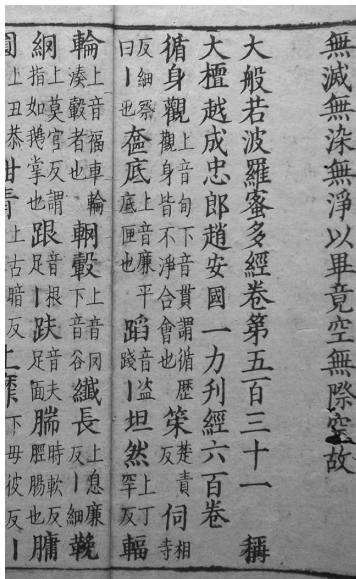 無滅無染無淨以畢竟空無際空故
大般若波羅蜜多經卷第五百三十一 稱
大檀越成忠郎趙安國一力刊經六百卷
循身觀上音旬下音貫謂循歷觀身皆不淨合會也筞楚責反伺相寺
反細察曰丨也奩底上音廉平底匣也蹈音盜踐丨坦然上丁罕反輻
輪上音福車輪湊轂者也輞轂上音罔下音谷纖長上息廉反丨細鞔
網上莫官反謂指如鵝掌也跟音根足丨趺音夫足面腨時軟反脛腸也𦟛
圓上丑恭紺青上古暗反上靡下毋彼反丨